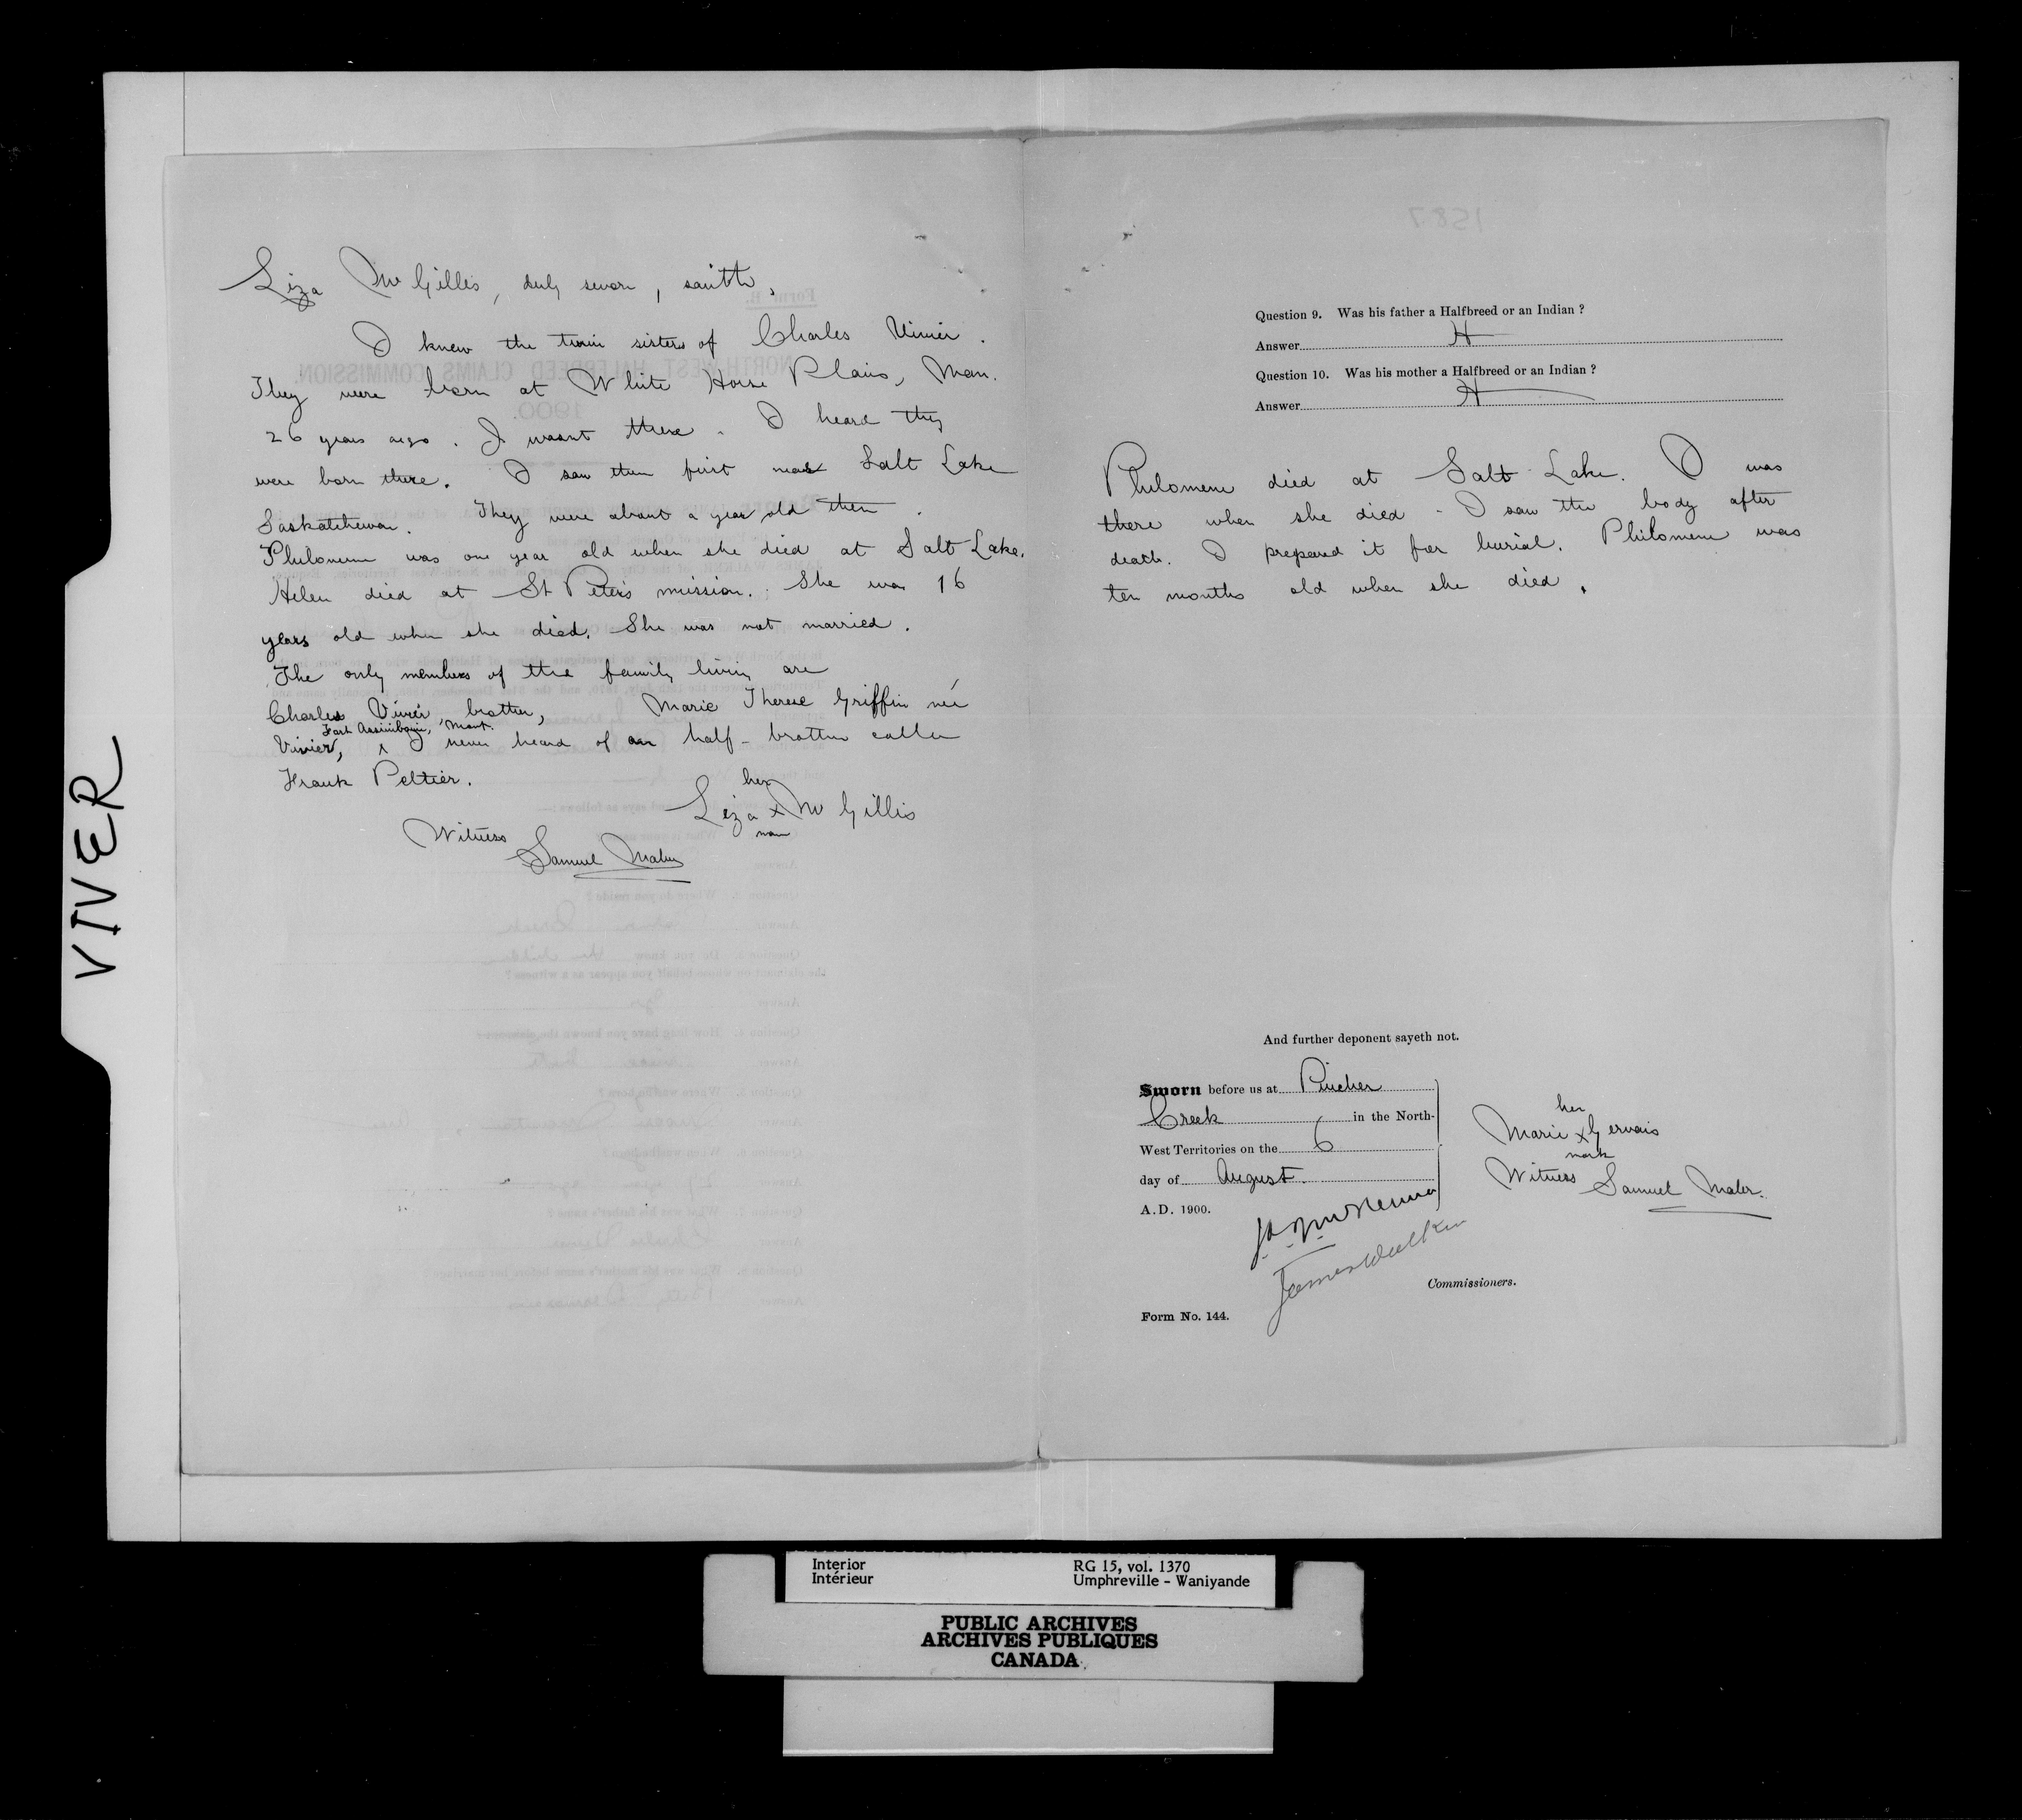 VIVER
Liza McGilles, duly sworn, saith,
I knew the twin sisters of Charles Vivier.
They were born at White Horse Plains, Man.
26 years ago. I wasnt there. I heard they
were born there. I saw them first near Salt Lake
Saskatchewan. They were about a year old then.
Philomene was one year old when she died at Salt Lake.
Helen died at St Peter's mission. She was 16
years old when she died. She was not married.
The only members of the family living are
Charles Vivier, brother, Marie Therese Griffin née
Fort Assiniboine, Mont.
Vivier, I never heard of a half-brother called
Frank Peltier.
her
Liza x McGillis
mark
Witness
Samuel Maber
Question 9. Was his father a Halfbreed or an Indian ?
Answer H
Question 10. Was his mother a Halfbreed or an Indian ?
Answer H
Philomene died at Salt Lake. I was
there when she died - I saw the body after
death. I prepared it for burial. Philomene was
ten months old when she died.
And further deponent sayeth not.
Sworn before us at Pincher
Creek in the North-
West Territories on the 6
day of August
A.D. 1900.
her
Marie x Gervais
mark
Witness Samuel Maber.
J.A.J. McKenna
James Walker
Commissioners.
Form No. 144.
Interior
Intérieur
RG 15, vol. 1370
Umphreville - Waniyande
PUBLIC ARCHIVES
ARCHIVES PUBLIQUES
CANADA